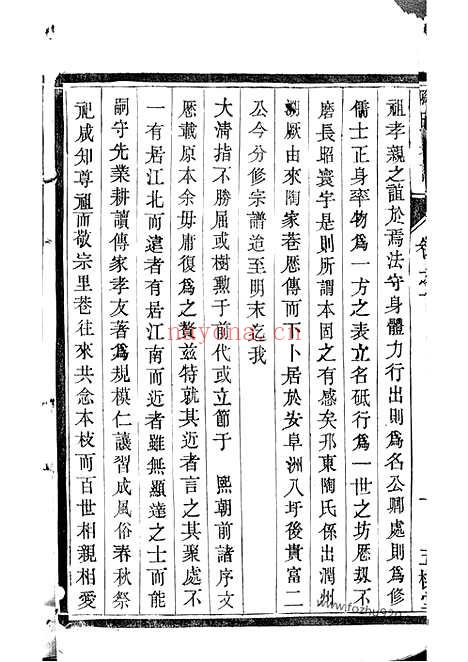 祖孝親之誼於焉法守身體力行出則爲名公卿處則爲修
儒士正身率物爲一方之表立名砥行爲一世之坊歷刼不
磨長昭寰宇是則所謂本固之有感矣邗東陶氏係出潤州
溯厥由來陶家巷歷傳而下卜居於安阜洲八圩後貴富二
公今分修宗譜造至明末迄我
大淸指不勝屈或樹勲于前代或立節于 熙朝前諸序文
歷載原本余毋庸復爲之贅茲特就其近者言之其聚處不
一有居江北而遠者有居江南而近者雖無顯達之士而能
嗣守先業耕讀傳家孝友著爲規模仁讓習成風俗春秋祭
祀咸知尊祖而敬宗里巷往來共念本枝而百世相親相愛
nayona.cn
www.fozhu920.com